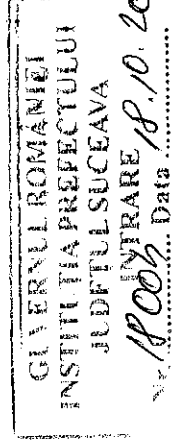 GUVERNUL ROMÂNIEI
INSTITUȚIA PREFECTULUI
JUDEȚUL SUCEAVA
INTRARE
Nr. 18003 Data 18.10.20